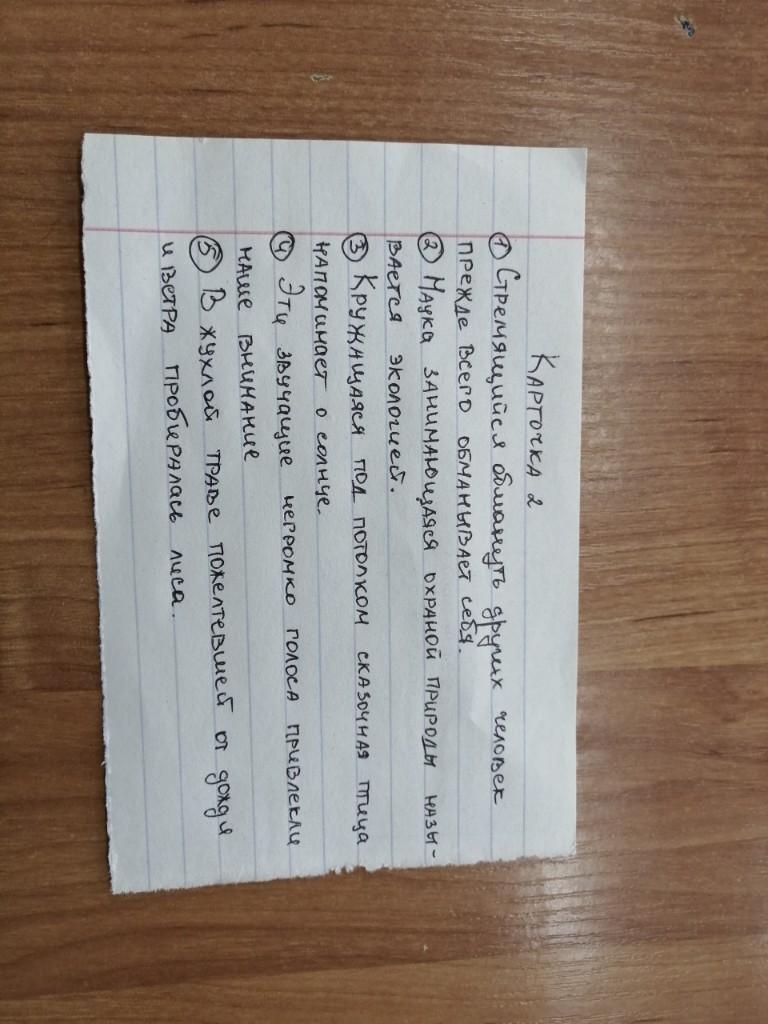 Карточка 2
① Стремящийся обмануть других человек
прежде всего обманывает себя.
② Наука занимающаяся охраной природы назы-
вается экологией.
③ Кружащаяся под потолком сказочная птица
напоминает о солнце.
④ Эти звучащие негромко голоса привлекли
наше внимание
⑤ В жухлой траве пожелтевшей от дождя
и ветра пробиралась лиса.